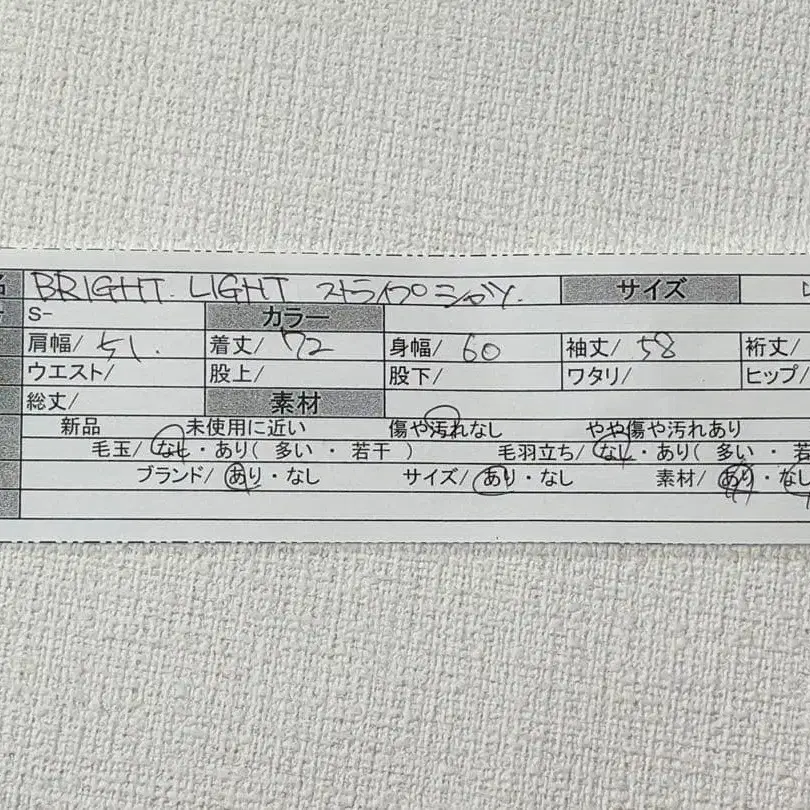 名 BRIGHT. LIGHT ストライプシャツ. サイズ L
S- カラー
肩幅/ 51. 着丈/ 72 身幅/ 60 袖丈/ 58 裄丈/
ウエスト/ 股上/ 股下/ ワタリ/ ヒップ/
総丈/ 素材
新品 未使用に近い 傷や汚れなし やや傷や汚れあり
毛玉/ なし・あり( 多い ・ 若干 ) 毛羽立ち/ なし・あり( 多い ・ 若
ブランド/ あり・なし サイズ/ あり・なし 素材/ あり・なし